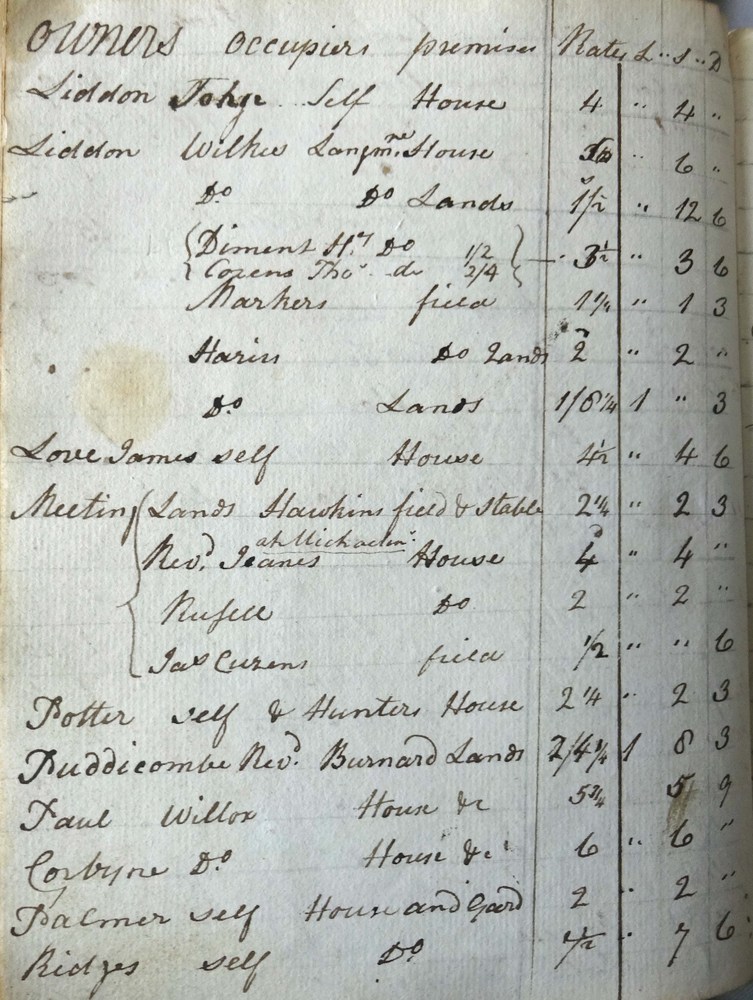 Owners occupiers premises Rates L " S " D
Liddon Self House 4 " 4 "
Liddon Wilkes Langmre House " 6 "
Do Do Lands 1/2 " 12 6
Diment Hy Do 1/2 3½ " 3 6
Cozens Thos do 2/4
Markers field 1¼ " 1 3
Hariss Do Lands 2 " 2 "
Do Lands 1/8¼ 1 " 3
Love James self House 4½ " 4 6
Meeting Lands Hawkins field & Stable 2¼ " 2 3
at Michaelms
Revd Jeanes House 4 " 4 "
Rufsell Do 2 " 2 "
Jas Cuzens field ½ " " 6
Potter self & Hunters House 2¼ " 2 3
Puddicombe Revd Burnard Lands 2/4¼ 1 8 3
Paul Willox House &c 5¾ 5 9
Corbyne Do House &c 6 " 6 "
Palmer self House and Gard 2 " 2 "
Ridges self Do 7½ " 7 6